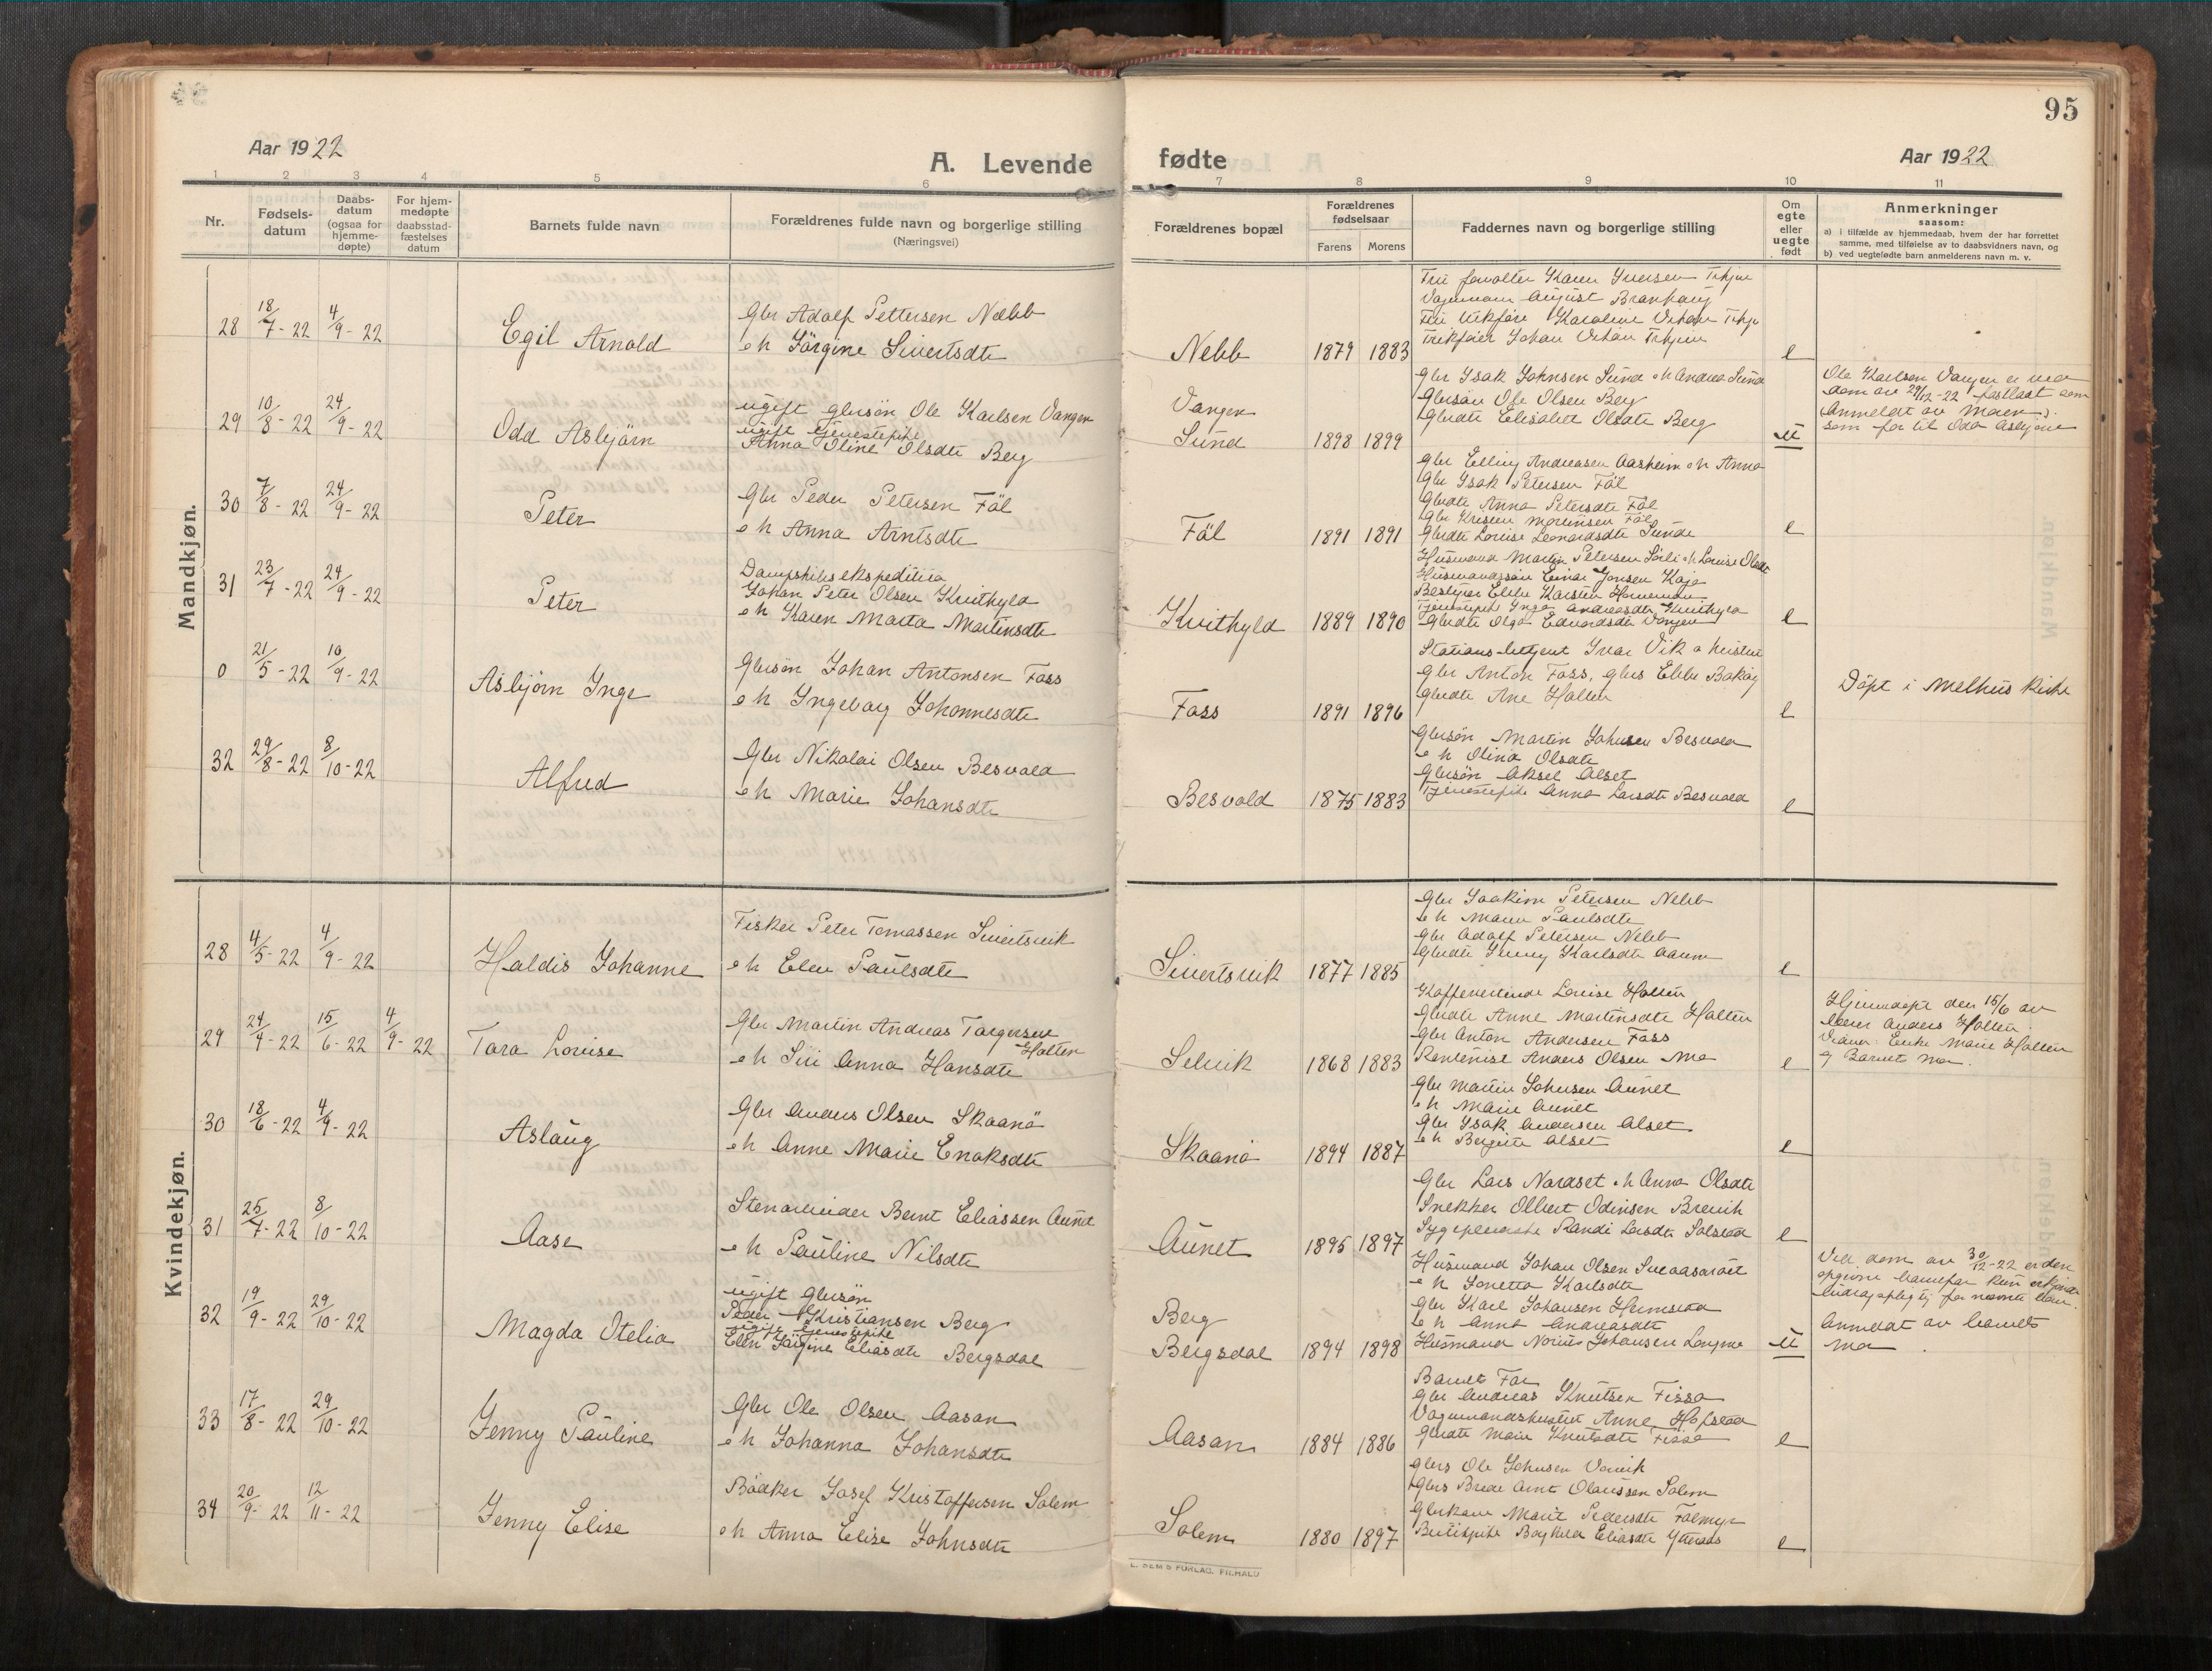 95
Aar 1922
A. Levende
fødte
Aar 1922
1 2 3 4 5 6 7 8 9 10 11
Nr.
Fødsels-
datum
Daabs-
datum
(ogsaa for
hjemme-
døpte)
For hjem-
medøpte
daabsstad-
fæstelses
datum
Barnets fulde navn
Forældrenes fulde navn og borgerlige stilling
(Næringsvei)
Forældrenes bopæl
Forældrenes
fødselsaar
Farens Morens
Faddernes navn og borgerlige stilling
Om
egte
eller
uegte
født
Anmerkninger
saasom:
a) i tilfælde av hjemmedaab, hvem der har forrettet
samme, med tilføielse av to daabsvidners navn, og
b) ved uegtefødte barn anmelderens navn m. v.
Mandkjøn.
28 18/7-22 4/9-22 Egil Arnold
Gbr Adolf Pettersen Nebb
o h Jörgine Sivertsdtr
Nebb 1879 1883
August
Johan
e
29 10/8-22 24/9-22 Odd Asbjörn
ugift gbrsön Ole Karlsen Vangen
ugift tjenestepike
Anna Oline Olsdtr Berg
Vangen
Sund 1898 1899
Gbr Isak Johnsen Sund o h Andrea Sund
Gbrsön Ole Olsen Berg
Gbrdtr Elisabet Olsdtr Berg
u
Ole Karlsen Vangen er ved
dom av 29/12-22 fastslaat som
som far til Odd Asbjörn
30 7/8-22 24/9-22 Peter
Gbr Peder Petersen Föl
o h Anna Arntsdtr
Föl 1891 1891
Gbr Elling Andreasen Aasheim o h Anna
Gbr Isak Petersen Föl
Gbrdtr Anna Petersdtr Föl
Gbr Kristen Mortensen Föl
Gbrdtr Louise Leonardsdtr Sunde
e
31 23/7-22 24/9-22 Peter
Dampskibsekspeditör
Johan Peter Olsen Kvithyld
o h Karen Marta Martinsdtr
Kvithyld 1889 1890
Husmand Martin Petersen Sörli o h Louise Olsdtr
Husmandssön Einar Jensen Kaja
Gbrdtr Olga Edvardsdtr Vangen
e
0 21/5-22 10/9-22 Asbjörn Inge
Gbrsön Johan Antonsen Foss
o h Ingeborg Johannesdtr
Foss 1891 1896
Stationsbetjent Ivar Vik o hustru
Gbr Anton Foss,
Gbrdtr Ane Holten
e
Döpt i Melhus kirke
32 29/8-22 8/10-22 Alfred
Gbr Nikolai Olsen Besvold
o h Marie Johansdtr
Besvold 1875 1883
Gbrsön Martin Johnsen Besvold
o h Olina Olsdtr
Gbrsön Aksel Alset
Tjenestepike Anna Larsdtr Besvold
e
Kvindekjøn.
28 4/5-22 4/9-22 Haldis Johanne
Fisker Peter Tomassen Sivertsvik
o h Elen Paulsdtr
Sivertsvik 1877 1885
Gbr Joakim Petersen Nebb
o h Paulsdtr
Gbr Adolf Petersen Nebb
Gbrdtr Jenny Karlsdtr Aaum
e
29 24/4-22 15/6-22 4/9-22 Tora Louise
Gbr Martin Andreas Torgersen
Holten
o h Siri Anna Hansdtr
Selvik 1868 1883
Kaffevertinde Louise Holten
Gbrdtr Anne Martinsdtr Holten
Gbr Anton Andersen Foss
Anders Olsen Mo
e
Hjemdöpt den 15/6 av
lærer Anders Holten.
Vidner: Enke Marie Holten
og Barnets Mor.
30 18/6-22 4/9-22 Aslaug
Gbr Anders Olsen Skaanö
o h Anne Marie Enoksdtr
Skaanö 1894 1887
Gbr Martin Johnsen Aunet
o h Marie Aunet
Gbr Isak Andersen Alset
o h Bergitte Alset
e
31 25/7-22 8/10-22 Aase
Stenarbeider Bernt Eliassen Aunet
o h Pauline Nilsdtr
Aunet 1895 1897
Gbr Lars Nordset o h Anna Olsdtr
Snekker Olbert Odinsen Brevik
Sygepleierske Randi Larsdtr
e
32 19/9-22 29/10-22 Magda Otelia
ugift Gbrsön
Peder Kristiansen Berg
ugift tjenestepike
Elen Jörgine Eliasdtr Bergsdal
Berg
Bergsdal 1894 1898
Husmand Johan Olsen
o h Jonetta Karlsdtr
Gbr Karl Johansen Heimstad
o h Anna Andreasdtr
Husmand Johansen
u
Ved dom av 30/12-22 er den
opgivne barnefar kun erkjendt
bidragspligtig for nævnte barn.
Anmeldt av barnets
mor
33 17/8-22 29/10-22 Jenny Pauline
Gbr Ole Olsen Aasan
o h Johanna Johansdtr
Aasan 1884 1886
Barnets Far
Gbr Andreas Knutsen Fissa
Anne Hofstad
Gbrdtr Marie Knutsdtr Fissa
e
34 20/9-22 12/11-22 Jenny Elise
Bödker Josef Kristoffersen Solem
o h Anna Elise Johnsdtr
Solem 1880 1897
Gbrs Ole Johnsen
Gbrs Arnt Olaussen Solem
Gbrkone Marit Pedersdtr
Eliasdtr
e